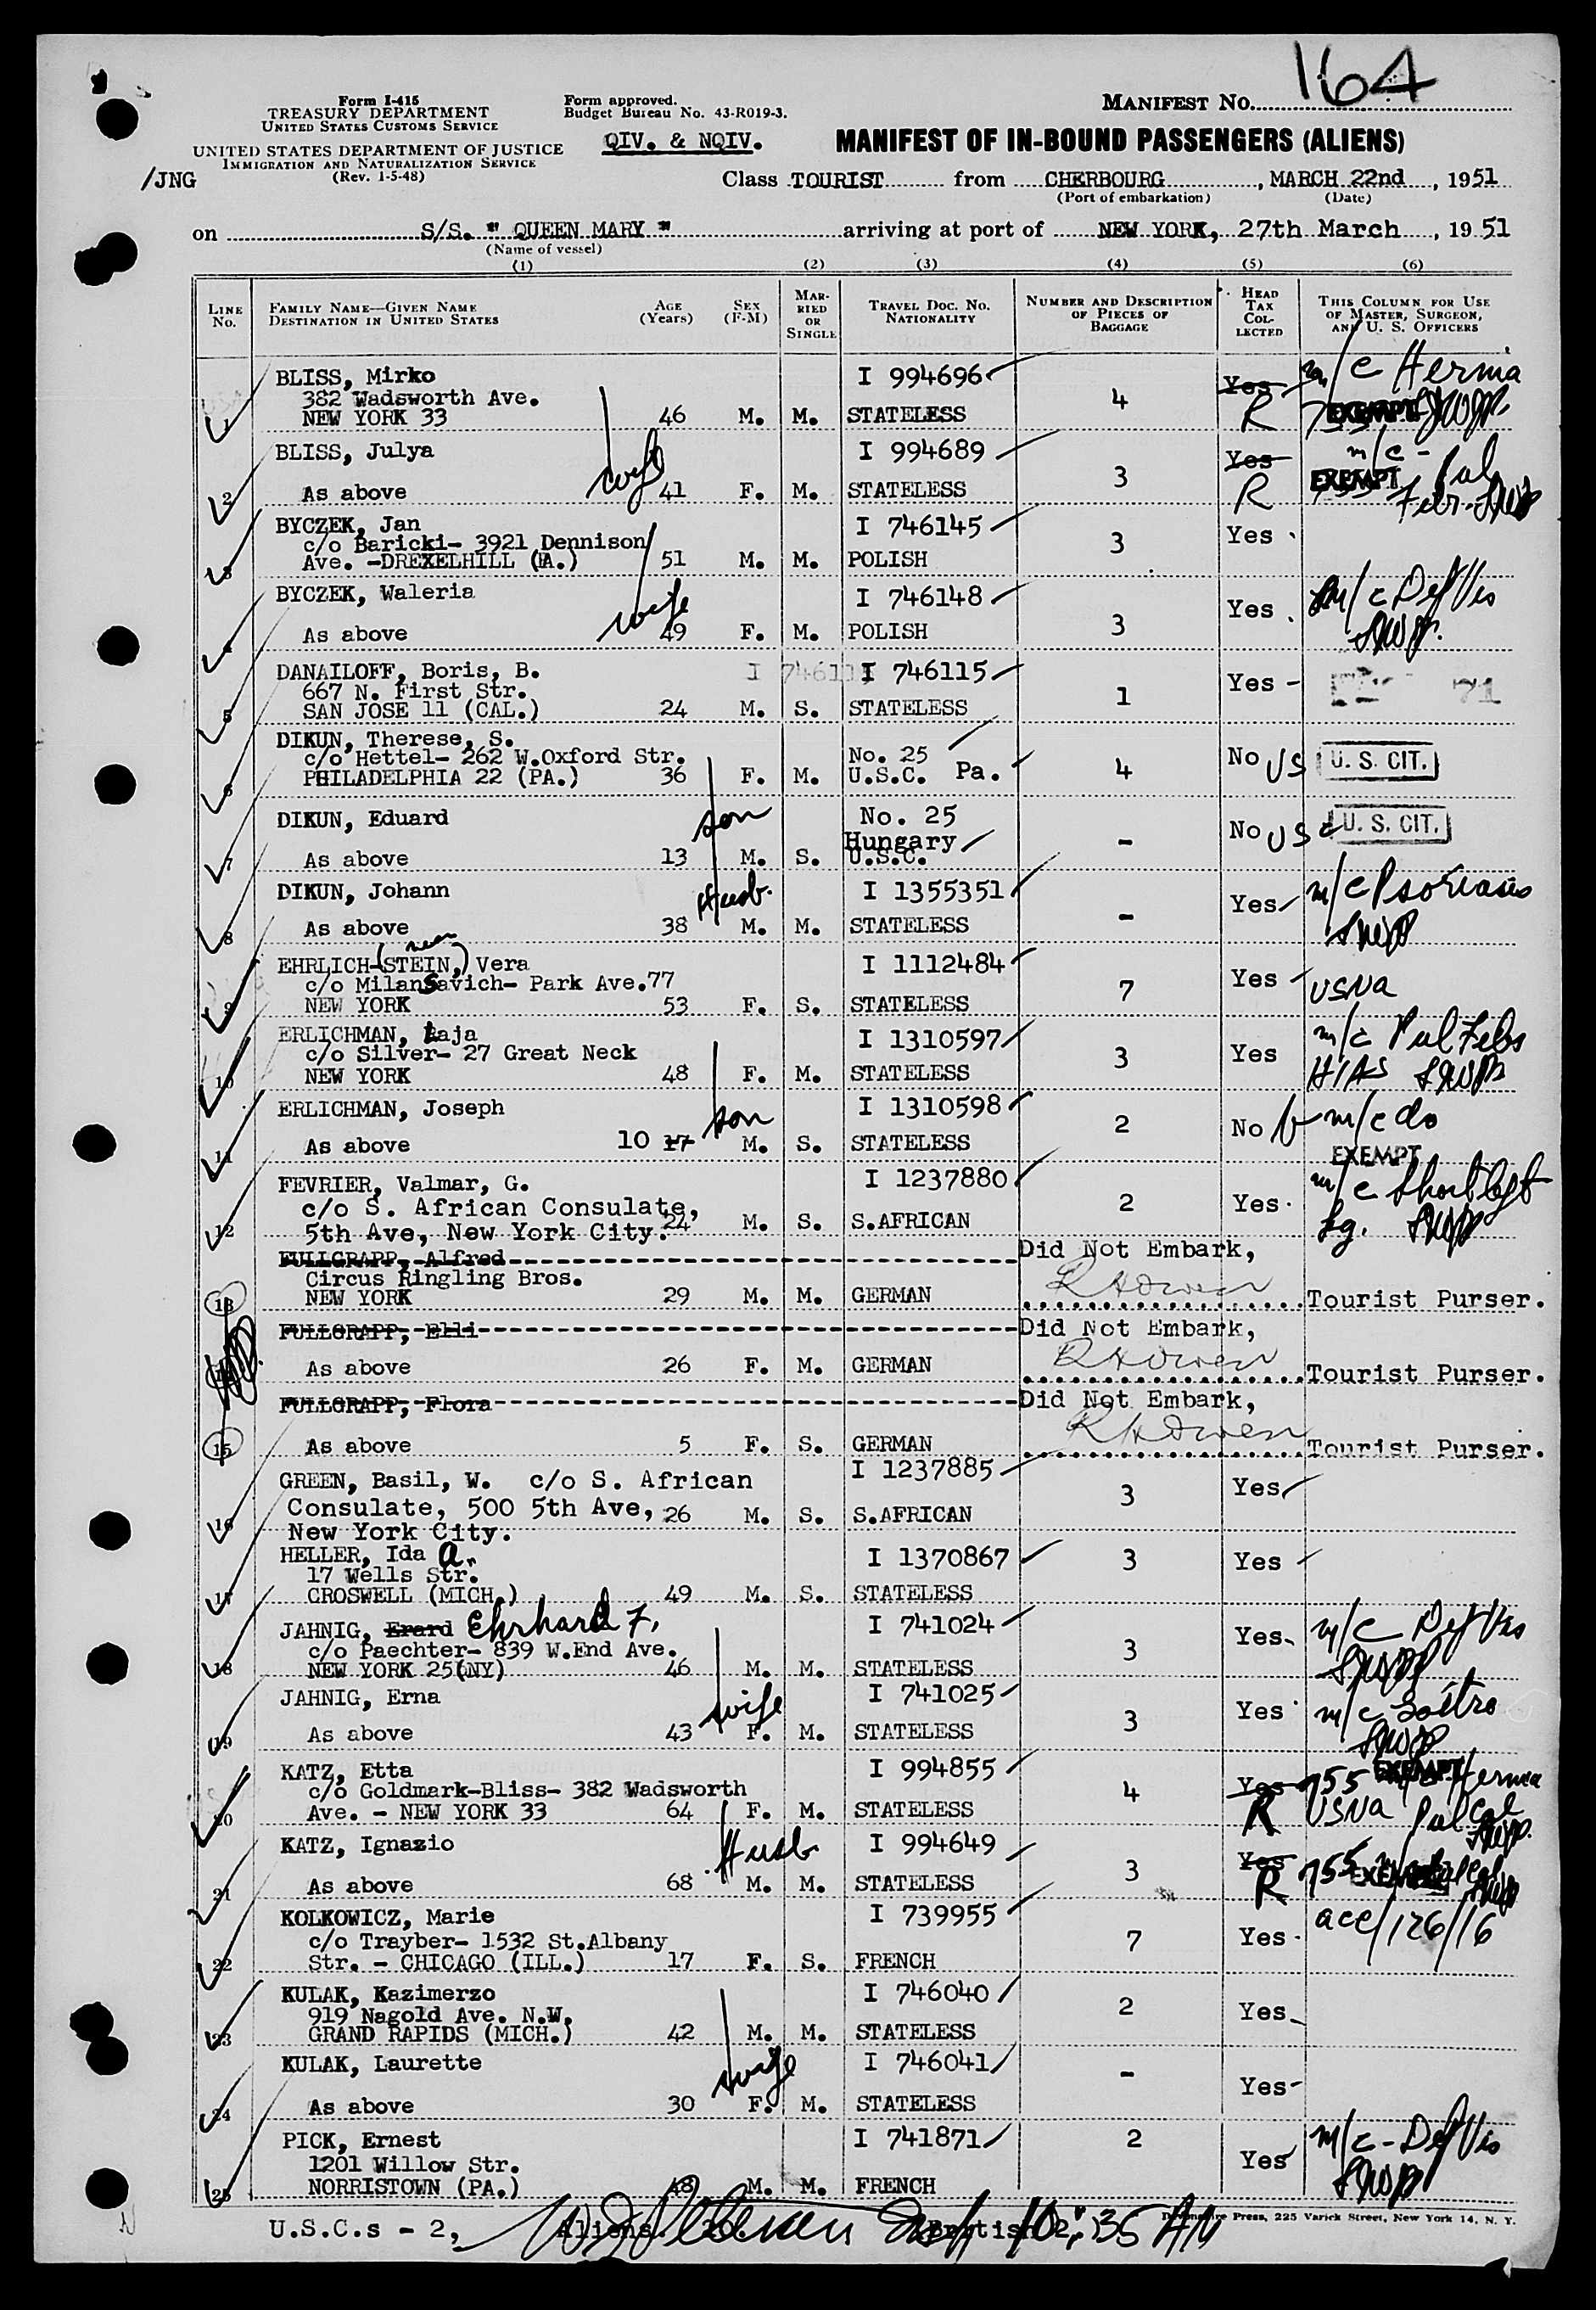 164
Form I-415
TREASURY DEPARTMENT
UNITED STATES CUSTOMS SERVICE
UNITED STATES DEPARTMENT OF JUSTICE
IMMIGRATION AND NATURALIZATION SERVICE
(Rev. 1-5-48)
/JNG
Form approved.
Budget Bureau No. 43-R019-3.
QIV. & NQIV.
MANIFEST No.
MANIFEST OF IN-BOUND PASSENGERS (ALIENS)
Class TOURIST from CHERBOURG, MARCH 22nd, 1951
(Port of embarkation) (Date)
on S/S. " QUEEN MARY " arriving at port of NEW YORK, 27th March, 1951
(Name of vessel)
(1) (2) (3) (4) (5) (6)
LINE No. FAMILY NAME—GIVEN NAME DESTINATION IN UNITED STATES AGE (Years) SEX (F-M) MARRIED OR SINGLE TRAVEL DOC. No. NATIONALITY NUMBER AND DESCRIPTION OF PIECES OF BAGGAGE HEAD TAX COLLECTED THIS COLUMN FOR USE OF MASTER, SURGEON, AND U. S. OFFICERS
BLISS, Mirko I 994696 m/c Hernia
382 Wadsworth Ave. 4 Yes
1 NEW YORK 33 46 M. M. STATELESS R EXEMPT
BLISS, Julya wife I 994689 3 Yes m/c - Pul
2 As above 41 F. M. STATELESS R EXEMPT
BYCZEK, Jan I 746145 3 Yes
c/o Baricki- 3921 Dennison
3 Ave. -DREXELHILL (PA.) 51 M. M. POLISH
BYCZEK, Waleria wife I 746148 3 Yes m/c Def Vis
4 As above 49 F. M. POLISH
DANAILOFF, Boris, B. I 746115 I 746115 1 Yes
667 N. First Str.
5 SAN JOSE 11 (CAL.) 24 M. S. STATELESS
DIKUN, Therese, S.
c/o Hettel- 262 W.Oxford Str. No. 25 4 No US U. S. CIT.
6 PHILADELPHIA 22 (PA.) 36 F. M. U.S.C. Pa.
DIKUN, Eduard son No. 25 - No US c U. S. CIT.
Hungary
7 As above 13 M. S. U.S.C.
DIKUN, Johann Husb. I 1355351 - Yes m/c Psoriasis
8 As above 38 M. M. STATELESS
EHRLICH-(nee STEIN,) Vera I 1112484 7 Yes USNA
c/o Milan Savich- Park Ave.77
9 NEW YORK 53 F. S. STATELESS
ERLICHMAN, Raja I 1310597 3 Yes m/c Pul Febs
c/o Silver- 27 Great Neck
10 NEW YORK 48 F. M. STATELESS HIAS
ERLICHMAN, Joseph son I 1310598 2 No m/c do
11 As above 10 17 M. S. STATELESS EXEMPT
FEVRIER, Valmar, G. I 1237880 2 Yes m/c short left
c/o S. African Consulate, Lg.
12 5th Ave, New York City. 24 M. S. S.AFRICAN
FULLGRAPP, Alfred Did Not Embark,
Circus Ringling Bros. R H Owen
13 NEW YORK 29 M. M. GERMAN Tourist Purser.
FULLGRAPP, Elli Did Not Embark,
As above 26 F. M. GERMAN R H Owen Tourist Purser.
FULLGRAPP, Flora Did Not Embark,
15 As above 5 F. S. GERMAN R H Owen Tourist Purser.
GREEN, Basil, W. c/o S. African I 1237885 3 Yes
16 Consulate, 500 5th Ave, 26 M. S. S.AFRICAN
New York City.
HELLER, Ida A. I 1370867 3 Yes
17 Wells Str.
17 CROSWELL (MICH.) 49 M. S. STATELESS
JAHNIG, Erard Ehrhard F. I 741024 3 Yes m/c Def Vis
c/o Paechter- 839 W.End Ave.
18 NEW YORK 25(NY) 46 M. M. STATELESS
JAHNIG, Erna wife I 741025 3 Yes m/c Goitre
19 As above 43 F. M. STATELESS
KATZ, Etta I 994855 4 Yes 755 EXEMPT Hernia
c/o Goldmark-Bliss- 382 Wadsworth
20 Ave. - NEW YORK 33 64 F. M. STATELESS R USNA Pul
KATZ, Ignazio Husb I 994649 3 Yes 755 EXEMPT
21 As above 68 M. M. STATELESS R
KOLKOWICZ, Marie I 739955 7 Yes acc/126/16
c/o Trayber- 1532 St.Albany
22 Str. - CHICAGO (ILL.) 17 F. S. FRENCH
KULAK, Kazimerzo I 746040 2 Yes
919 Nagold Ave. N.W.
23 GRAND RAPIDS (MICH.) 42 M. M. STATELESS
KULAK, Laurette wife I 746041 - Yes
24 As above 30 F. M. STATELESS
PICK, Ernest I 741871 2 Yes m/c - Def Vis
1201 Willow Str.
25 NORRISTOWN (PA.) 48 M. M. FRENCH
U.S.C.s - 2, Aliens. 20. British 2. 10:35 AM
Press, 225 Varick Street, New York 14, N. Y.